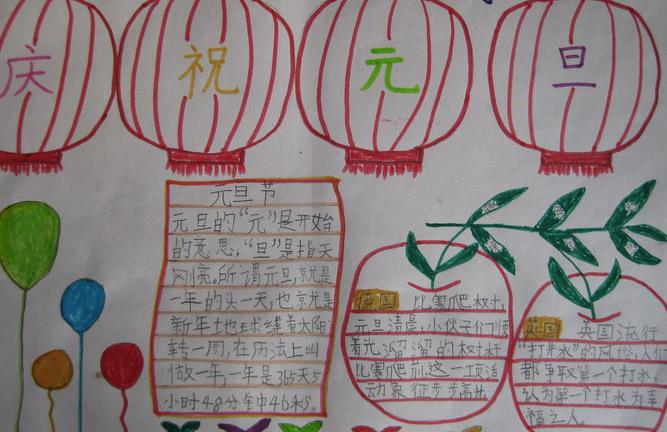 庆祝元旦
元旦节
元旦的“元”是开始
的意思,“旦”是指天
刚亮。所谓元旦,就是
一年的头一天,也就是
新年地球绕着太阳
转一周,在历法上叫
做一年,一年是365天5
小时48分钟46秒。
德国 比赛爬树,
元旦清晨,小伙子们顺
着光溜溜的树杆
比赛爬前,这一项活
动象征步步高升。
英国 英国流行
“打井水”的风俗,人们
都争取第一个打水。
认为第一个打水为幸
福之人。